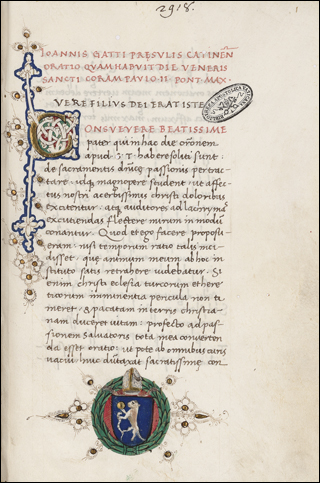 2918.
1
IOANNIS GATTI PRESULIS CATINEN
ORATIO QVAM HABVIT DIE VENERIS
SANCTI CORAM PAVLO II PONT MAX.
VERE FILIVS DEI ERAT ISTE
CONSVEVERE BEATISSIME
pater qui in hac die orõnem
apud .S.T. habere soliti sunt
de sacramentis dnicę passionis pertrac
tare. idq; magnopere student ut affec
tus nostri acerbissimis christi doloribus
excitentur. atq; auditores ad lachrymas
excutiendas flectere mirum in modum
conantur. Quod et ego facere proposu
eram: nisi temporum ratio talis inci
disset: que animum meum ab hoc in
stituto satis retrahere uidebatur. Si
enim christi eclesia turcorum et here
ticorum imminentia pericula non ti
meret: & pacatam in terris christia
nam duceret uitam: profecto ad pas
sionem saluatoris tota mea conuerten
da esset oratio: ut pote ab omnibus curis
uacui huic dumtaxat sacratissime con